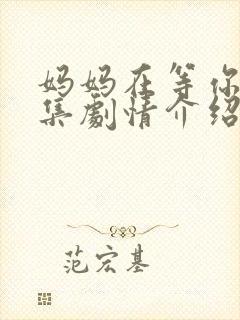 妈妈在等你
集剧情介绍
范宏基